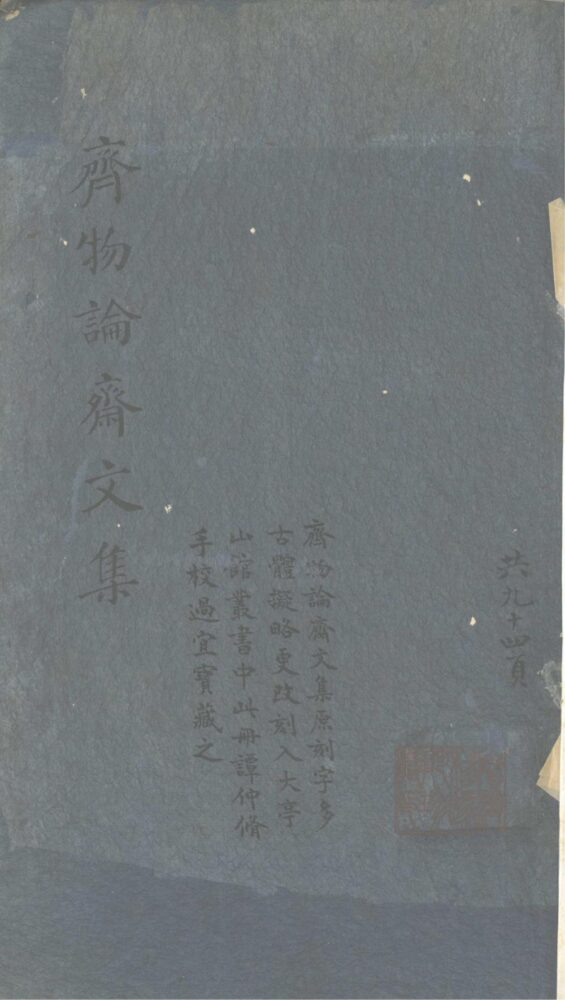 共九十四頁
齊物論齋文集原刻字多
古體擬略更改刻入大亭
山館叢書中此冊譚仲脩
手校過宜寶藏之
齊物論齋文集